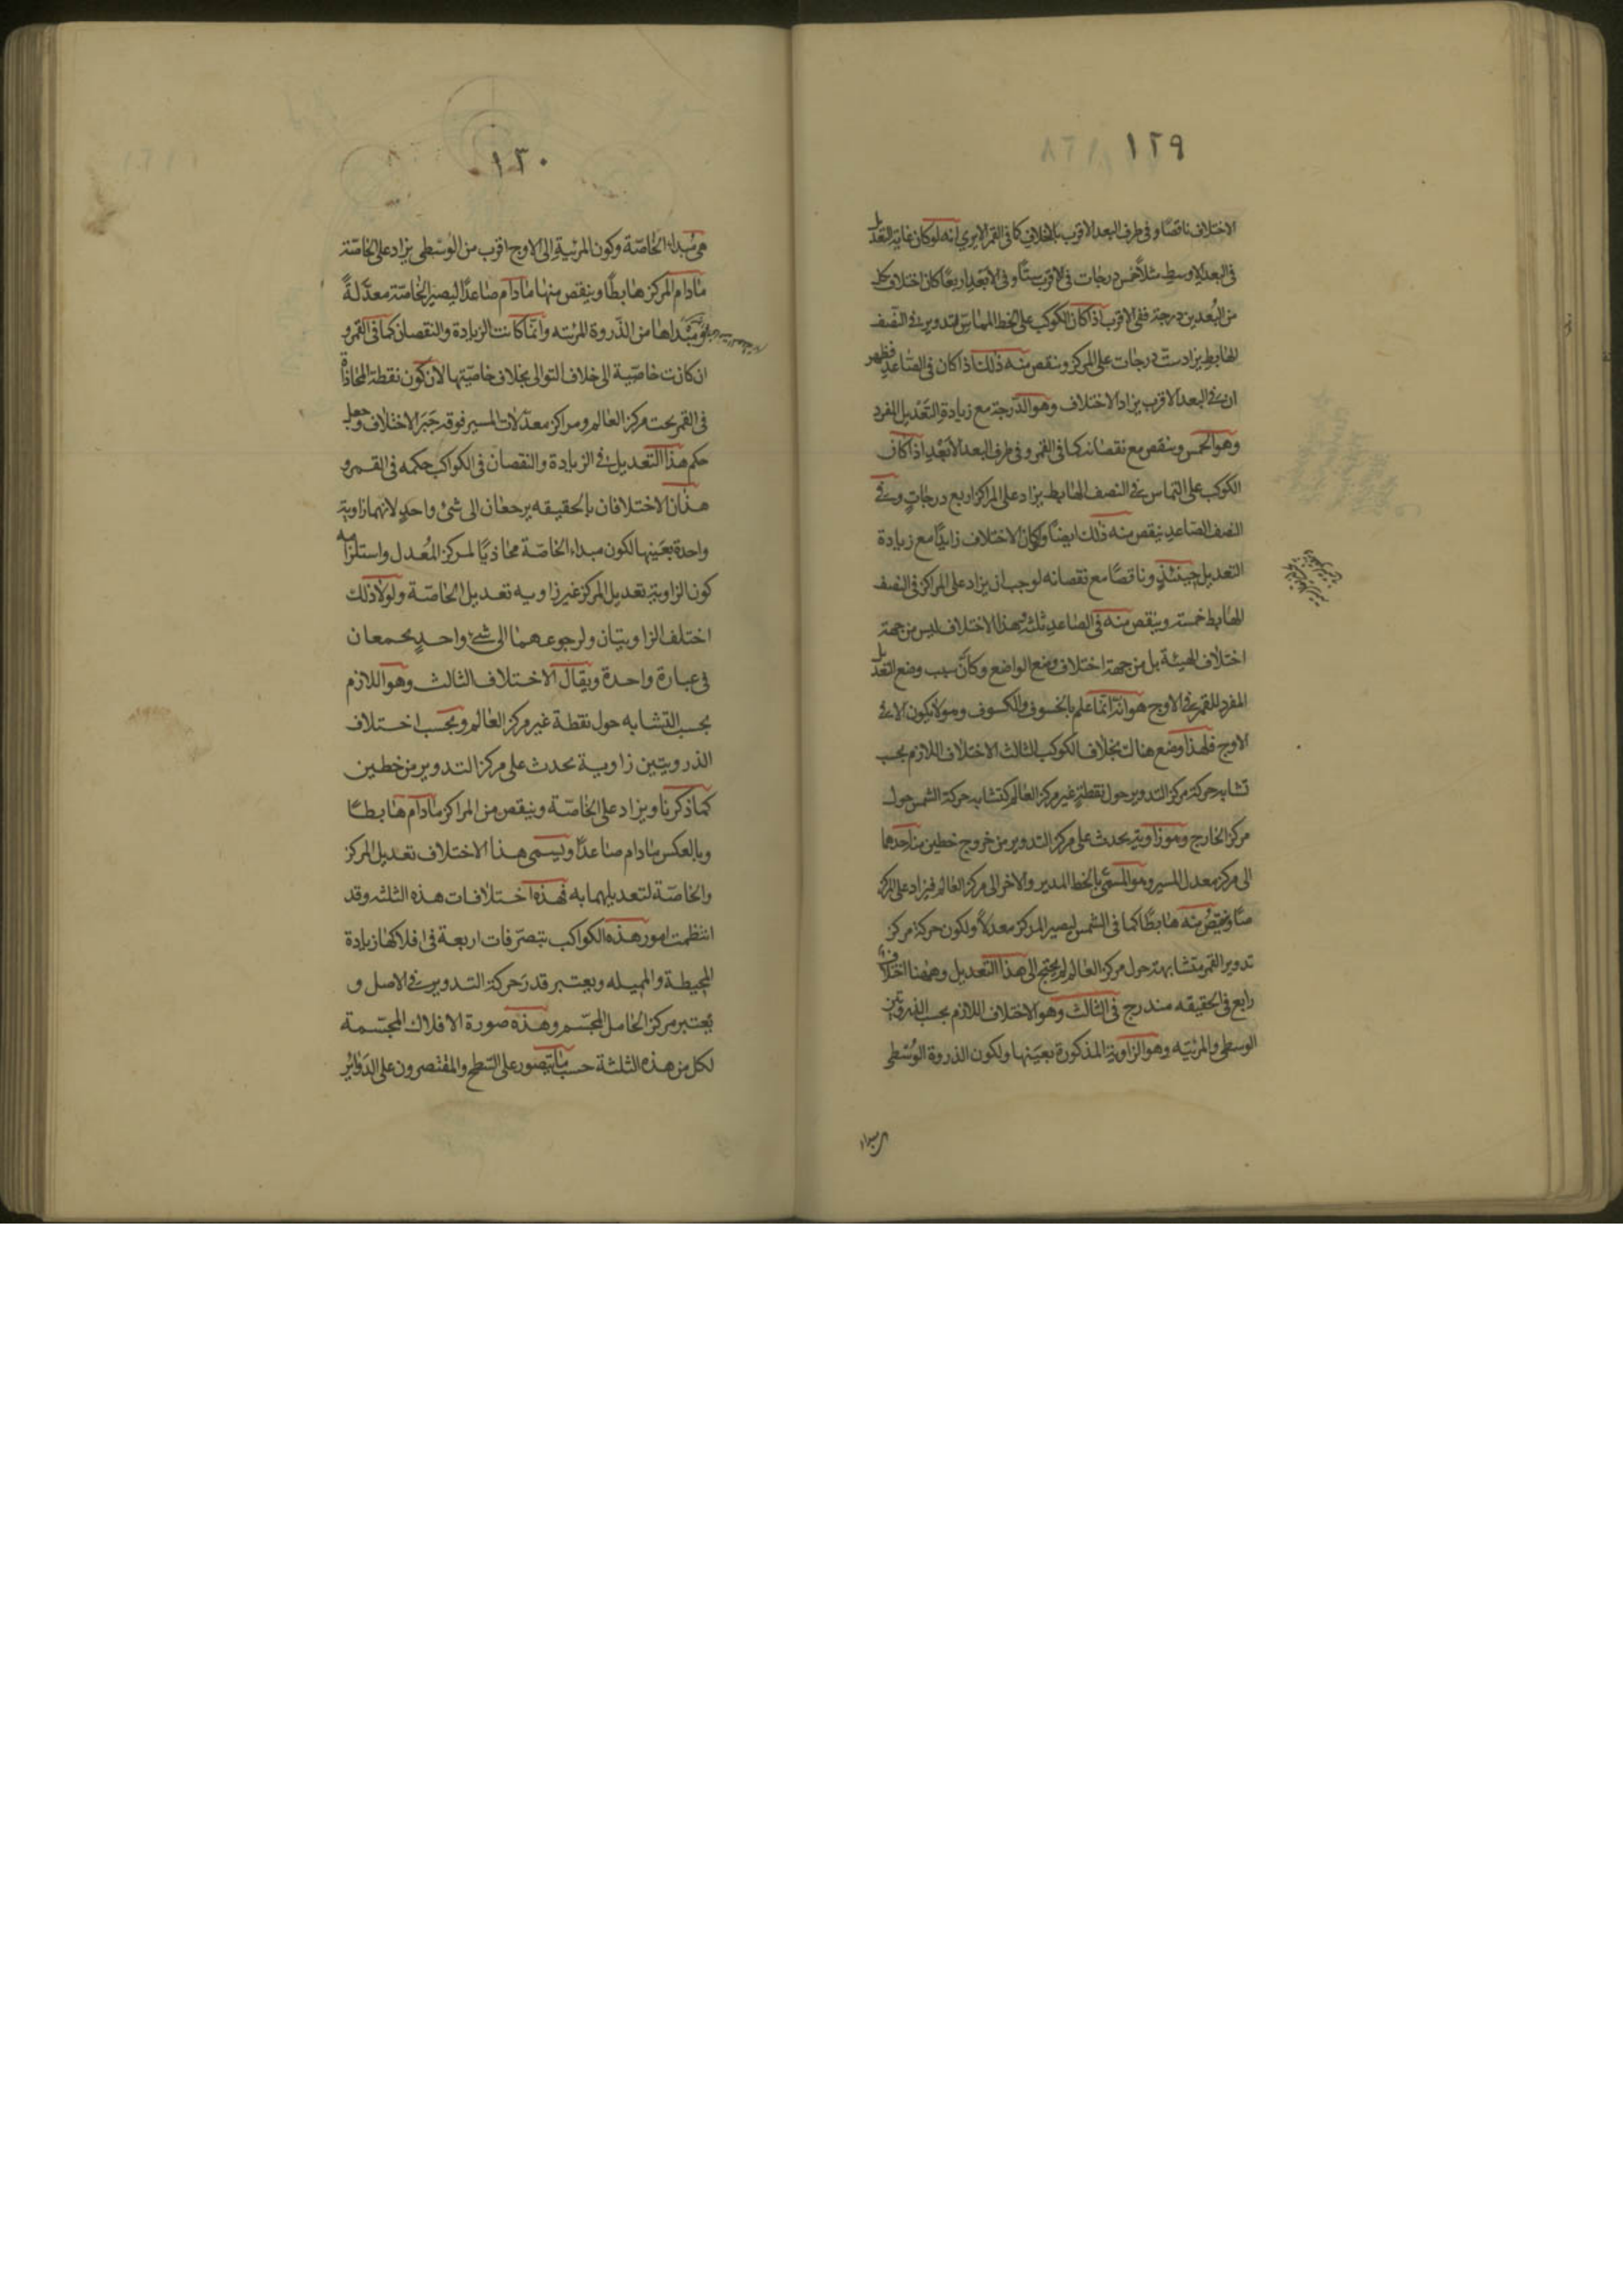 ١٢٩
الاختلاف ناقصًا وفى طرف البعد الاقرب بالخلاف كما فى القمر الا يرى انه لو كان غاية التعديل
فى البعد الاوسط مثلاً خمس درجات فى الاقرب ستًا وفى الأبعد اربعًا كان اختلاف كل
من البُعدين درجة ففى الاقرب اذا كان الكوكب على الخط المماسّ للتدوير فى النصف
الهابط يزاد ستّ درجات على المركز وينقص منه ذلك اذا كان فى الصاعد فظهر
ان فى البعد الاقرب يزاد الاختلاف وهو الدّرجة مع زيادة التعديل المفرد
وهو الخمس وينقص مع نقصانه كما فى القمر وفى طرف البعد الأبعد اذا كان
الكوكب على التماس فى النصف الهابط يزاد على المراكز اربع درجاتٍ وفى
النصف الصاعد ينقص منه ذلك ايضًا ولو كان الاختلاف زايدًا مع زيادة
التعديل حينئذٍ وناقصًا مع نقصانه لوجب ان يزاد على المراكز فى النصف
الهابط خمسة وينقص منه فى الصاعد ثلثة وهذا الاختلاف ليس من جهة
اختلاف الهيئة بل من جهة اختلاف وضع الواضع وكانّ سبب وضع التعديل
المفرد للقمر فى الاوج هو انّه انّما علم بالخسوف والكسوف وهو لا يكون الا فى
الاوج فلهذا وضع هنالك بخلاف الكوكب الثالث الاختلاف اللازم بحسب
تشابه حركة مركز التدوير حول نقطةٍ غير مركز العالم كتشابه حركة الشمس حول
مركز الخارج وهو زاوية يحدث على مركز التدوير من خروج خطين منه احدهما
الى مركز معدل المسير وهو المسمّى بالخط المدير والاخر الى مركز العالم فيزاد على المركز
صاعدًا وينقص منه هابطًا كما فى الشمس ليصير المركز معدلاً ولكون حركة مركز
تدوير القمر متشابهة حول مركز العالم لم يحتج الى هذا التعديل وههنا اختلاف
رابع فى الحقيقه مندرج فى الثالث وهو الاختلاف اللازم بحسب الذروتين
الوسطى والمرئيه وهو الزاوية المذكورة بعينها ولكون الذروة الوُسْطى
١٣٠
هى مبداء الخاصّة وكون المرئيةِ الى الاوج اقرب من الوُسْطى يزاد على الخاصّة
مادام المركز هابطًا وينقص منها مادام صاعدًا ليصير الخاصّة معدَّلةً
ومبْداها من الذّروة المرئيه وانّما كانت الزيادة والنقصان كما فى القمر و
ان كانت خاصّية الى خلاف التوالى بخلاف خاصّيتها لان كون نقطة المحاذاة
فى القمر تحت مركز العالم ومراكز معدّلات المسير فوقه جَبَر الاختلاف وجعل
حكم هذا التعديل فى الزيادة والنقصان فى الكواكب حكمه فى القمر و
هذان الاختلافان بالحقيقه يرجعان الى شئ واحدٍ لانهما زاوية
واحدة بعَينها لكون مبداء الخاصّة محاذيًا لمركز المُعَدل واستلزامه
كون الزاوية تعديل المركز غير زاويه تعديل الخاصّة ولولا ذلك
اختلف الزاويتان ولرجوعهما الى شئ واحدٍ يجمعان
فى عبارة واحدة ويقال الاختلاف الثالث وهو اللازم
بحسب التشابه حول نقطة غير مركز العالم وبحسب اختلاف
الذرويتين زاوية يحدث على مركز التدوير من خطين
كما ذكرنا ويزاد على الخاصّة وينقص من المراكز مادام هابطًا
وبالعكس مادام صاعدًا ويسمى هذا الاختلاف تعديل المركز
والخاصّة لتعديلهما به فهذه اختلافات هذه الثلثه وقد
انتظمت امور هذه الكواكب بتصرّفات اربعة فى افلاكها زيادة
المحيطة والمميله ويعتبر قدر حركة التدوير فى الاصل و
يعتبر مركز الحامل المجسّم وهذه صورة الافلاك المجسّمة
لكل من هذه الثلثة حسب ما يتصور على السّطح والمقتصرون على الدَوايُر
مبداء